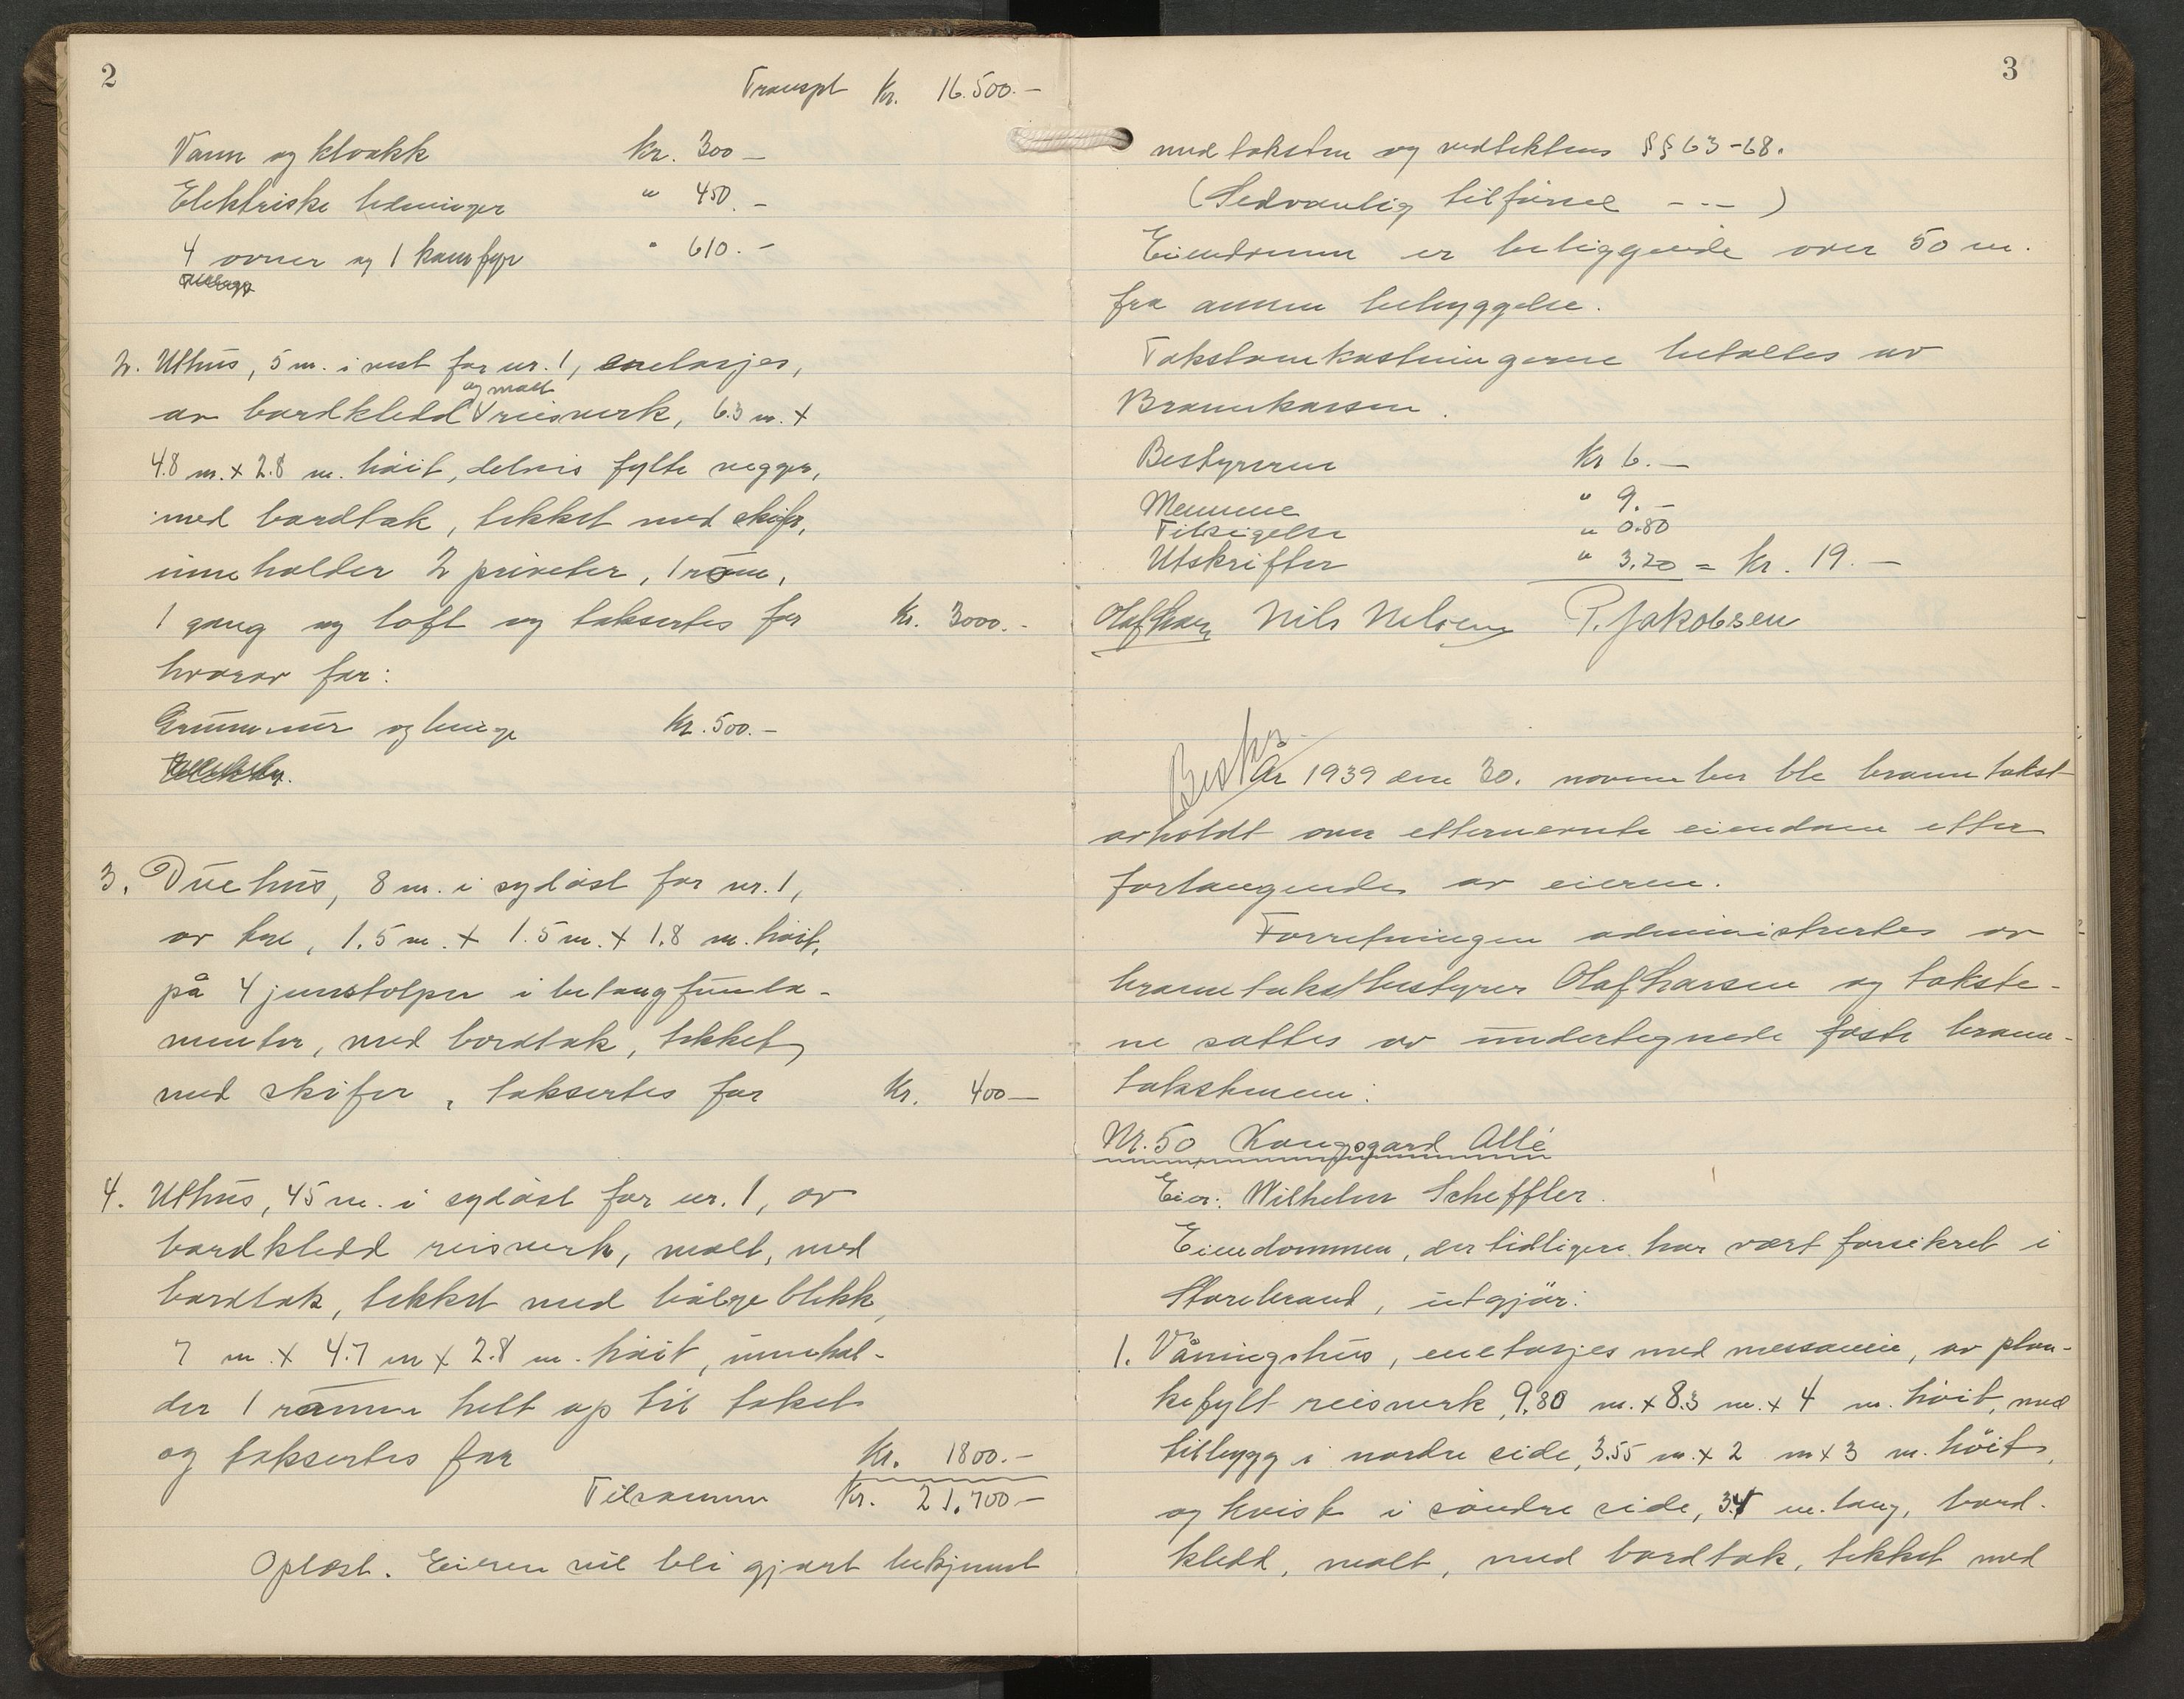 2
Transpt Kr. 16.500.-
Vann og kloakk kr. 300 -
Elektriske ledninger " 450. -
4 ovner og 1 komfyr " 610. -
2. Uthus, 5 m. i vest for nr. 1, enetasjes,
av bordkledd og malt reisverk, 6.3 m. x
4.8 m. x 2.8 m. höit, delvis fylte vegger,
med bordtak, tekket med skifer,
inneholder 2 priveter, 1 rom,
1 gang og loft og taksertes for Kr. 3000.-
hvorav for:
Grunnmur og binge Kr. 500.-
3. Duehus, 8 m. i sydöst for nr. 1,
av tre, 1.5 m. x 1.5 m. x 1.8 m. höit,
på 4 jernstolper i betongfunda-
menter, med bordtak, tekket
med skifer, taksertes for Kr. 400 -
4. Uthus, 45 m. i sydöst for nr. 1, av
bordkledd reisverk, malt, med
bordtak, tekket med bölgeblikk,
7 m. x 4.7 m x 2.8 m. höit, innehol-
der 1 rom helt op til taket
og taksertes for Kr. 1800.-
Tilsammen Kr. 21.700 -
Oplest. Eieren vil bli gjort bekjennt
3
med taksten og vedtektens §§ 63-68.
(Sedvanlig tilförsel - - - )
Eiendommen er beliggende over 50 m.
fra annen bebyggelse.
Takstomkostningene betaltes av
Brannkassen.
Bestyreren Kr 6. -
Mennene " 9. -
Tilsigelse " 0.80
Utskrifter " 3.20 = Kr. 19. -
Olaf Larsen Nils Nilsen P. Jakobsen
År 1939 den 30. november ble branntakst
avholdt over etternevnte eiendom efter
forlangende av eieren.
Forretningen administrertes av
branntakstbestyrer Olaf Larsen og takste-
ne sattes av undertegnede faste brann-
takstmenn:
Nr. 50 Kongsgard Allé
Eier: Wilhelm Scheffler.
Eiendommen, der tidligere har vært forsikret i
Storebrand, utgjör:
1. Våningshus, enetasjes med messanin, av plan-
kefylt reisverk, 9.80 m. x 8.3 m. x 4 m. höit, med
tilbygg i nordre side, 3.55 m. x 2 m x 3 m. höit,
og kvist i söndre side, 3.4 m. lang, bord-
kledd, malt, med bordtak, tekket med